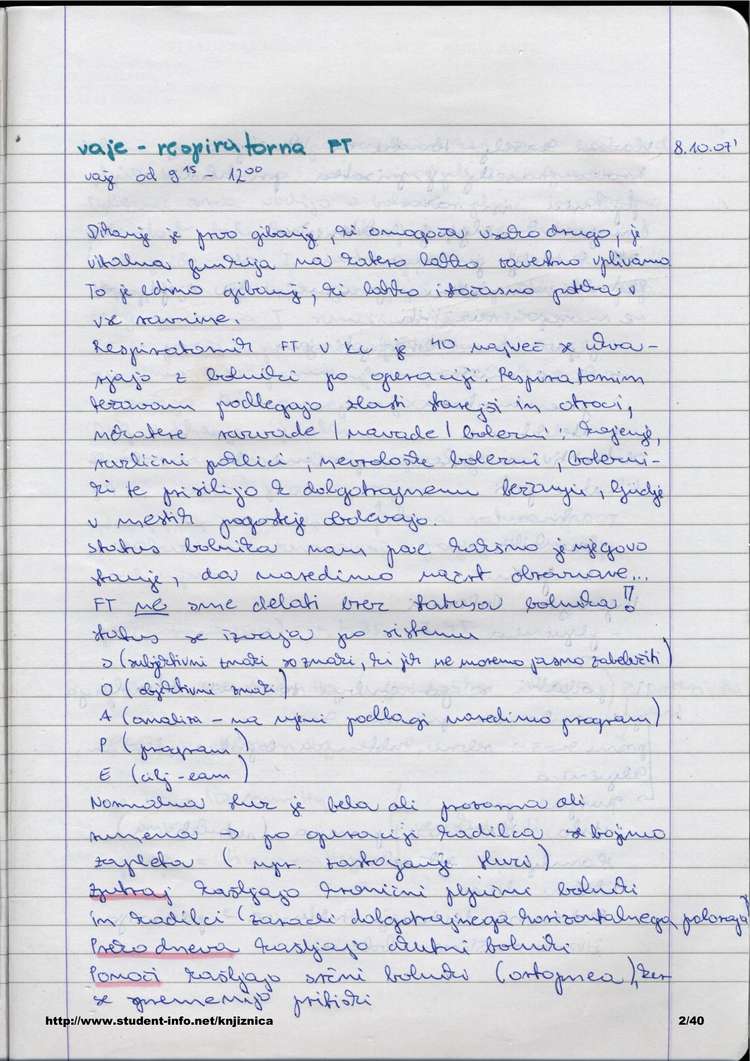 vaje - respiratorna FT 8.10.07'
vaje od 9 15 - 12 00
Dihanje je prvo gibanje, ki omogoča vsako drugo, je
vitalna funkcija na katero lahko zavestno vplivamo
To je edino gibanje, ki lahko istočasno poteka v
vse ravnine.
Respiratornih FT v KC je 40 največ se ukva-
rjajo z bolniki po operaciji. Respiratornim
težavam podlegajo zlasti starejši in otroci,
nekatere razvade / navade / bolezni: kajenje,
različni poklici, nevrološke bolezni, bolezni-
ki te prisilijo k dolgotrajnemu ležanju, ljudje
v mestih pogosteje obolevajo.
status bolnika nam pač kažemo je njegovo
stanje, da naredimo načrt obravnave...
FT ne sme delati brez statusa bolnika!!
status se izvaja po sistemu
S (subjektivni znaki so znaki, ki jih ne moremo jasno zabeležiti)
O (objektivni znaki)
A (analiza - na njeni podlagi naredimo program)
P (program)
E (cilj-eam)
Normalna sluz je bela ali prozorna ali
rumena → po operaciji kadilca se bojimo
zapleta (npr. zastajanje sluzi)
Zjutraj kašljajo kronični pljučni bolniki
in kadilci (zaradi dolgotrajnega horizontalnega položaja)
Preko dneva kašljajo akutni bolniki
Ponoči kašljajo srčni bolniki (ortopnea), ker
se spremenijo pritiski
http://www.student-info.net/knjiznica 2/40